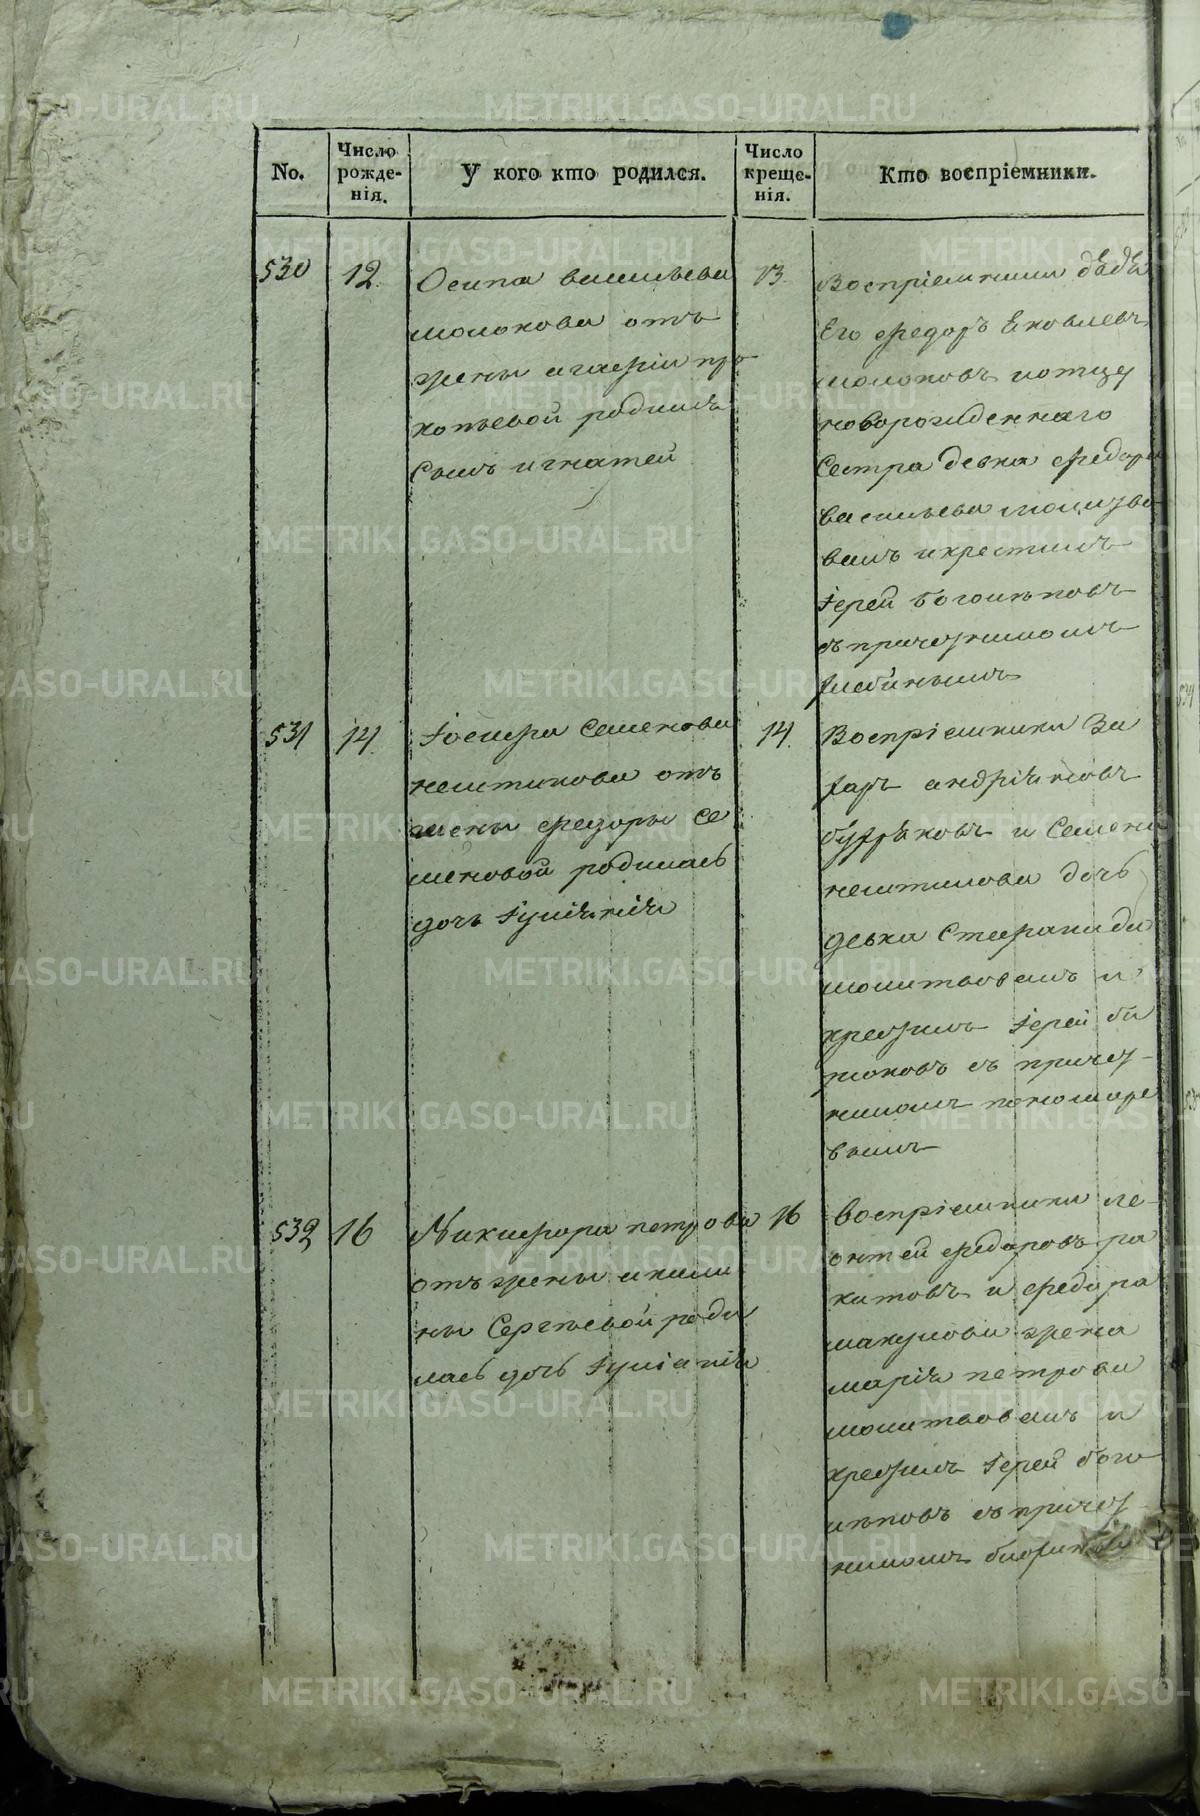 No.
Число рожде-нія.
У кого кто родился.
Число креще-нія.
Кто воспріемники.
530
12.
Осипа васильева
молокова отъ
жены агафіи про
копьевой родился
сынъ игнатей
13.
Воспріемники дѣдъ
Его федоръ Яковлевъ
молоковъ и отцу
новорожденнаго
Сестра девка федора
васильева молитво
валъ и крестилъ
Іерей
съ причетникомъ
531
14.
Іосифа Семенова
отъ
жены федоры Се
меновой родилась
дочь Іуліянія
14.
Воспріемники За
харъ андріяновъ
и Семена
дочь
девка Стефанида
молитвовалъ и
крестилъ Іерей би
рюковъ съ причет-
никомъ пономаре
вымъ
532
16
Никифора петрова
отъ жены акили
ны Сергѣевой роди
лась дочь Іуліанія
16
Воспріемники ле-
онтей федоровъ ра
китовъ и федора
жена
марія петрова
молитвовалъ и
крестилъ Іерей
съ причет
никомъ
METRIKI.GASO-URAL.RU